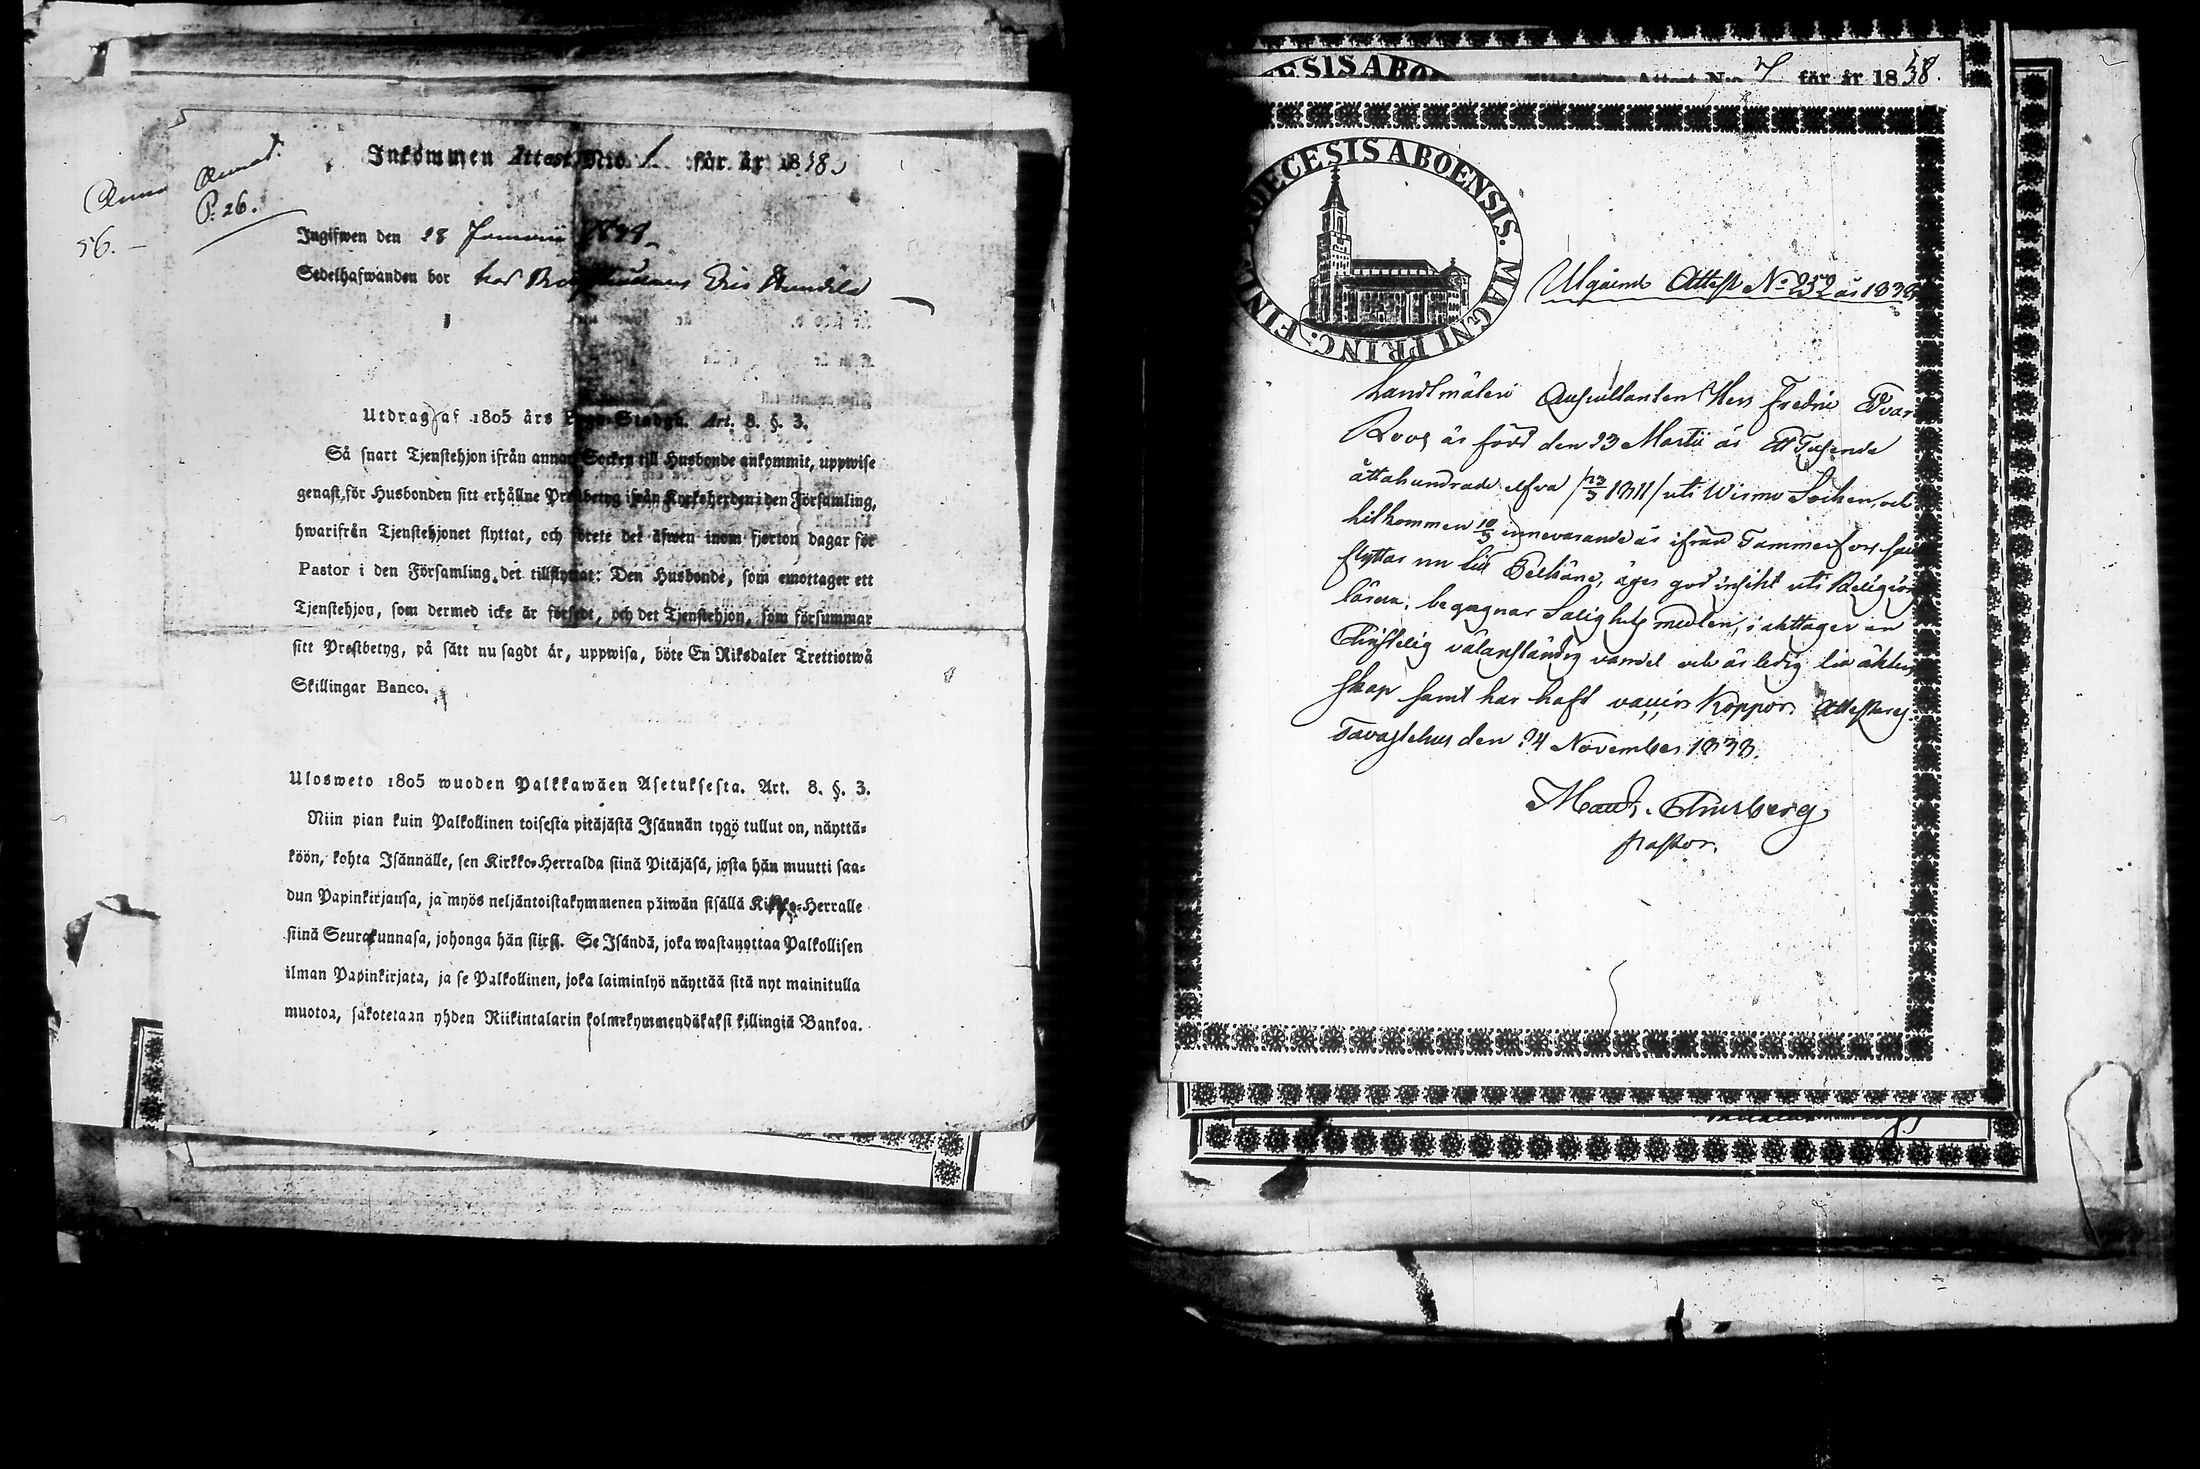 Anna Annot.
P. 26.
56. –
Inkommen Attest N:o 1 för år 1838.
Ingifwen den 28 Januarii
Sedelhafwanden bor hos
Utdrag af 1805 års Lego-Stadga. Art. 8. §. 3.
Så snart Tjenstehjon ifrån annan Socken till Husbonde ankommit, uppwise
genast för Husbonden sitt erhållne Prestbetyg ifrån Kyrkoherden i den Församling,
hwarifrån Tjenstehjonet flyttat, och förete det äfwen inom fjorton dagar för
Pastor i den Församling det tillflyttat: Den Husbonde, som emottager ett
Tjenstehjon, som dermed icke är försedt, och det Tjenstehjon, som försummar
sitt Prestbetyg, på sätt nu sagdt är, uppwisa, böte En Riksdaler Trettiotwå
Skillingar Banco.
Ulosweto 1805 wuoden Palkkawäen Asetuksesta. Art. 8. §. 3.
Niin pian kuin Palkollinen toisesta pitäjästä Isännän tygö tullut on, näyttä-
köön, kohta Isännälle, sen Kirkko-Herralda siinä Pitäjäsä, josta hän muutti saa-
dun Papinkirjansa, ja myös neljäntoistakymmenen päiwän sisällä Kirkko-Herralle
siinä Seurakunnasa, johonga hän siirsi. Se Isändä, joka wastanottaa Palkollisen
ilman Papinkirjata, ja se Palkollinen, joka laiminlyö näyttää sitä nyt mainitulla
muotoa, sakotetaan yhden Riikintalarin kolmekymmendäkaksi killingiä Bankoa.
ECESIS ABO
Attest N:o 7 för år 1838.
DIOECESIS ABOENSIS. MAGNI PRINC. FINL.
Utgående Attest No 252 år 1838
Landtmäteri Auscultanten Herr Fredric Edvard
Roos är född den 23 Martii år Ett Tusende
åttahundrade elfva /23/3 1811/ uti Wirmo Socken, och
hitkommen 10/3 innevarande år ifrån Tammerfors samt
flyttar nu till Pelkäne, äger god insikt uti Religions
läran, begagnar Salighets medlen, iakttager en
Christelig välanständig vandel och är ledig till äkten-
skap samt har haft vaccin Koppor. Attesteras
Tavastehus den 24 November 1838.
Pastor.